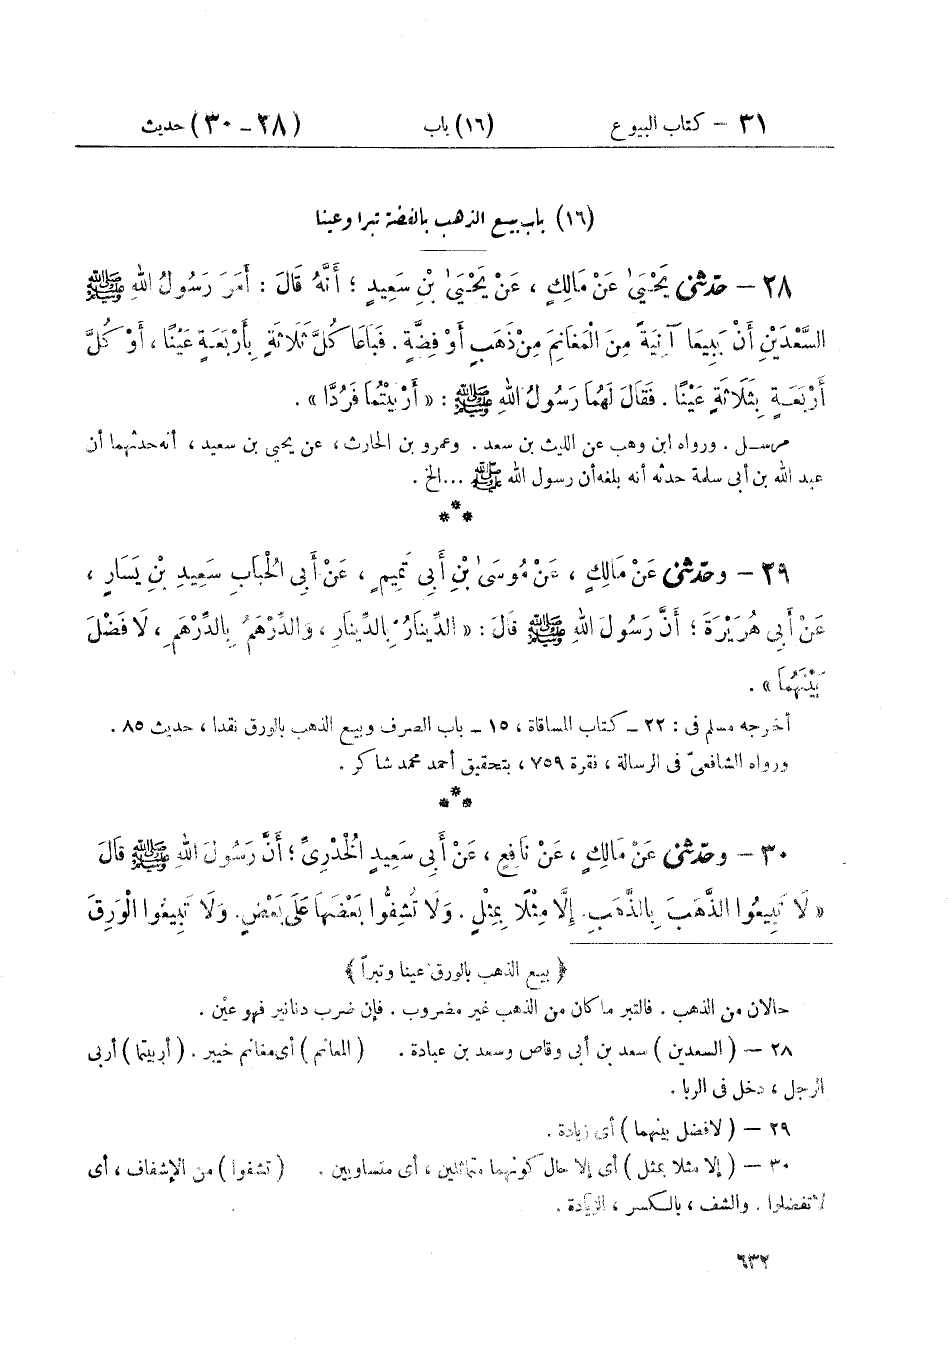 ٣١ – كتاب البيوع (١٦) باب (٢٨ – ٣٠) حديث
(١٦) باب بيع الذهب بالفضة تبرا وعينا
٢٨ – حَدَّثَنِى يَحْيَىٰ عَنْ مَالِكٍ ، عَنْ يَحْيَىٰ بْنِ سَعِيدٍ ؛ أَنَّهُ قَالَ : أَمَرَ رَسُولُ اللهِ ﷺ
السَّعْدَيْنِ أَنْ يَبِيعَا آنِيَةً مِنَ الْمَغَانِمِ مِنْ ذَهَبٍ أَوْ فِضَّةٍ . فَبَاعَا كُلَّ ثَلَاثَةٍ بِأَرْبَعَةٍ عَيْنًا ، أَوْ كُلَّ
أَرْبَعَةٍ بِثَلَاثَةٍ عَيْنًا . فَقَالَ لَهُمَا رَسُولُ اللهِ ﷺ : « أَرْبَيْتُمَا فَرُدَّا » .
مرسل . ورواه ابن وهب عن الليث بن سعد . وعمرو بن الحارث ، عن يحيى بن سعيد ، أنه حدثهما أن
عبد الله بن أبى سلمة حدثه أنه بلغه أن رسول الله ﷺ ... الخ .
***
٢٩ – وحَدَّثَنِى عَنْ مَالِكٍ ، عَنْ مُوسَىٰ بْنِ أَبِى تَمِيمٍ ، عَنْ أَبِى الْحُبَابِ سَعِيدِ بْنِ يَسَارٍ ،
عَنْ أَبِى هُرَيْرَةَ ؛ أَنَّ رَسُولَ اللهِ ﷺ قَالَ : « الدِّينَارُ بِالدِّينَارِ ، وَالدِّرْهَمُ بِالدِّرْهَمِ ، لَا فَضْلَ
بَيْنَهُمَا » .
أخرجه مسلم فى : ٢٢ – كتاب المساقاة ، ١٥ – باب الصرف وبيع الذهب بالورق نقدا ، حديث ٨٥ .
ورواه الشافعىّ فى الرسالة ، نقرة ٧٥٩ ، بتحقيق أحمد محمد شاكر .
***
٣٠ – وحَدَّثَنِى عَنْ مَالِكٍ ، عَنْ نَافِعٍ ، عَنْ أَبِى سَعِيدٍ الْخُدْرِىِّ ؛ أَنَّ رَسُولَ اللهِ ﷺ قَالَ
« لَا تَبِيعُوا الذَّهَبَ بِالذَّهَبِ . إِلَّا مِثْلًا بِمِثْلٍ . وَلَا تُشِفُّوا بَعْضَهَا عَلَى بَعْضٍ . وَلَا تَبِيعُوا الْوَرِقَ
﴿ بيع الذهب بالورق عينا وتبراً ﴾
حالان من الذهب . فالتبر ما كان من الذهب غير مضروب . فإن ضرب دنانير فهو عيْن .
٢٨ – ( السعدين ) سعد بن أبى وقاص وسعد بن عبادة . ( المغانم ) أى مغانم خيبر . ( أربيتما ) أربى
الرجل ، دخل فى الربا .
٢٩ – ( لا فضل بينهما ) أى زيادة .
٣٠ – ( إلا مثلا بمثل ) أى إلا حال كونهما متماثلين ، أى متساويين . ( تشفوا ) من الإشفاف ، أى
لا تفضلوا . والشف ، بالكسر ، الزيادة .
٦٣٢